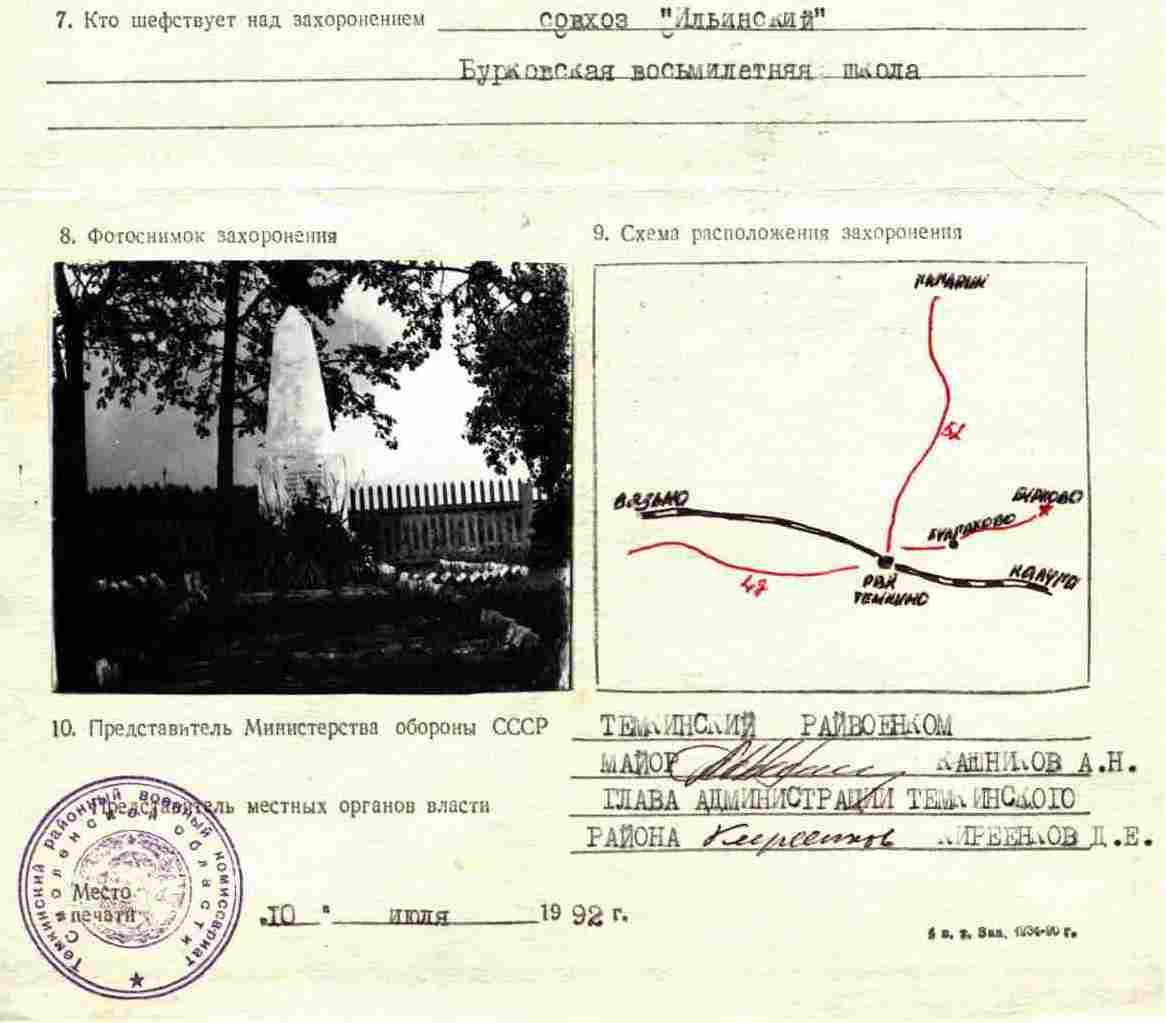 7. Кто шефствует над захоронением совхоз "Ильинский"
Бурковская восьмилетняя школа
8. Фотоснимок захоронения
9. Схема расположения захоронения
ВЯЗЬМО
БУРКОВО
БУЛГАКОВО
КАЛУГА
ТЕМКИНО
10. Представитель Министерства обороны СССР ТЕМКИНСКИЙ РАЙВОЕНКОМ
МАЙОР КАШНИКОВ А.Н.
Представитель местных органов власти ГЛАВА АДМИНИСТРАЦИИ ТЕМКИНСКОГО
РАЙОНА Киреенков КИРЕЕНКОВ Д.Е.
Темкинский районный военный комиссариат
Смоленской области
Место
печати
„10 " июля 1992 г.